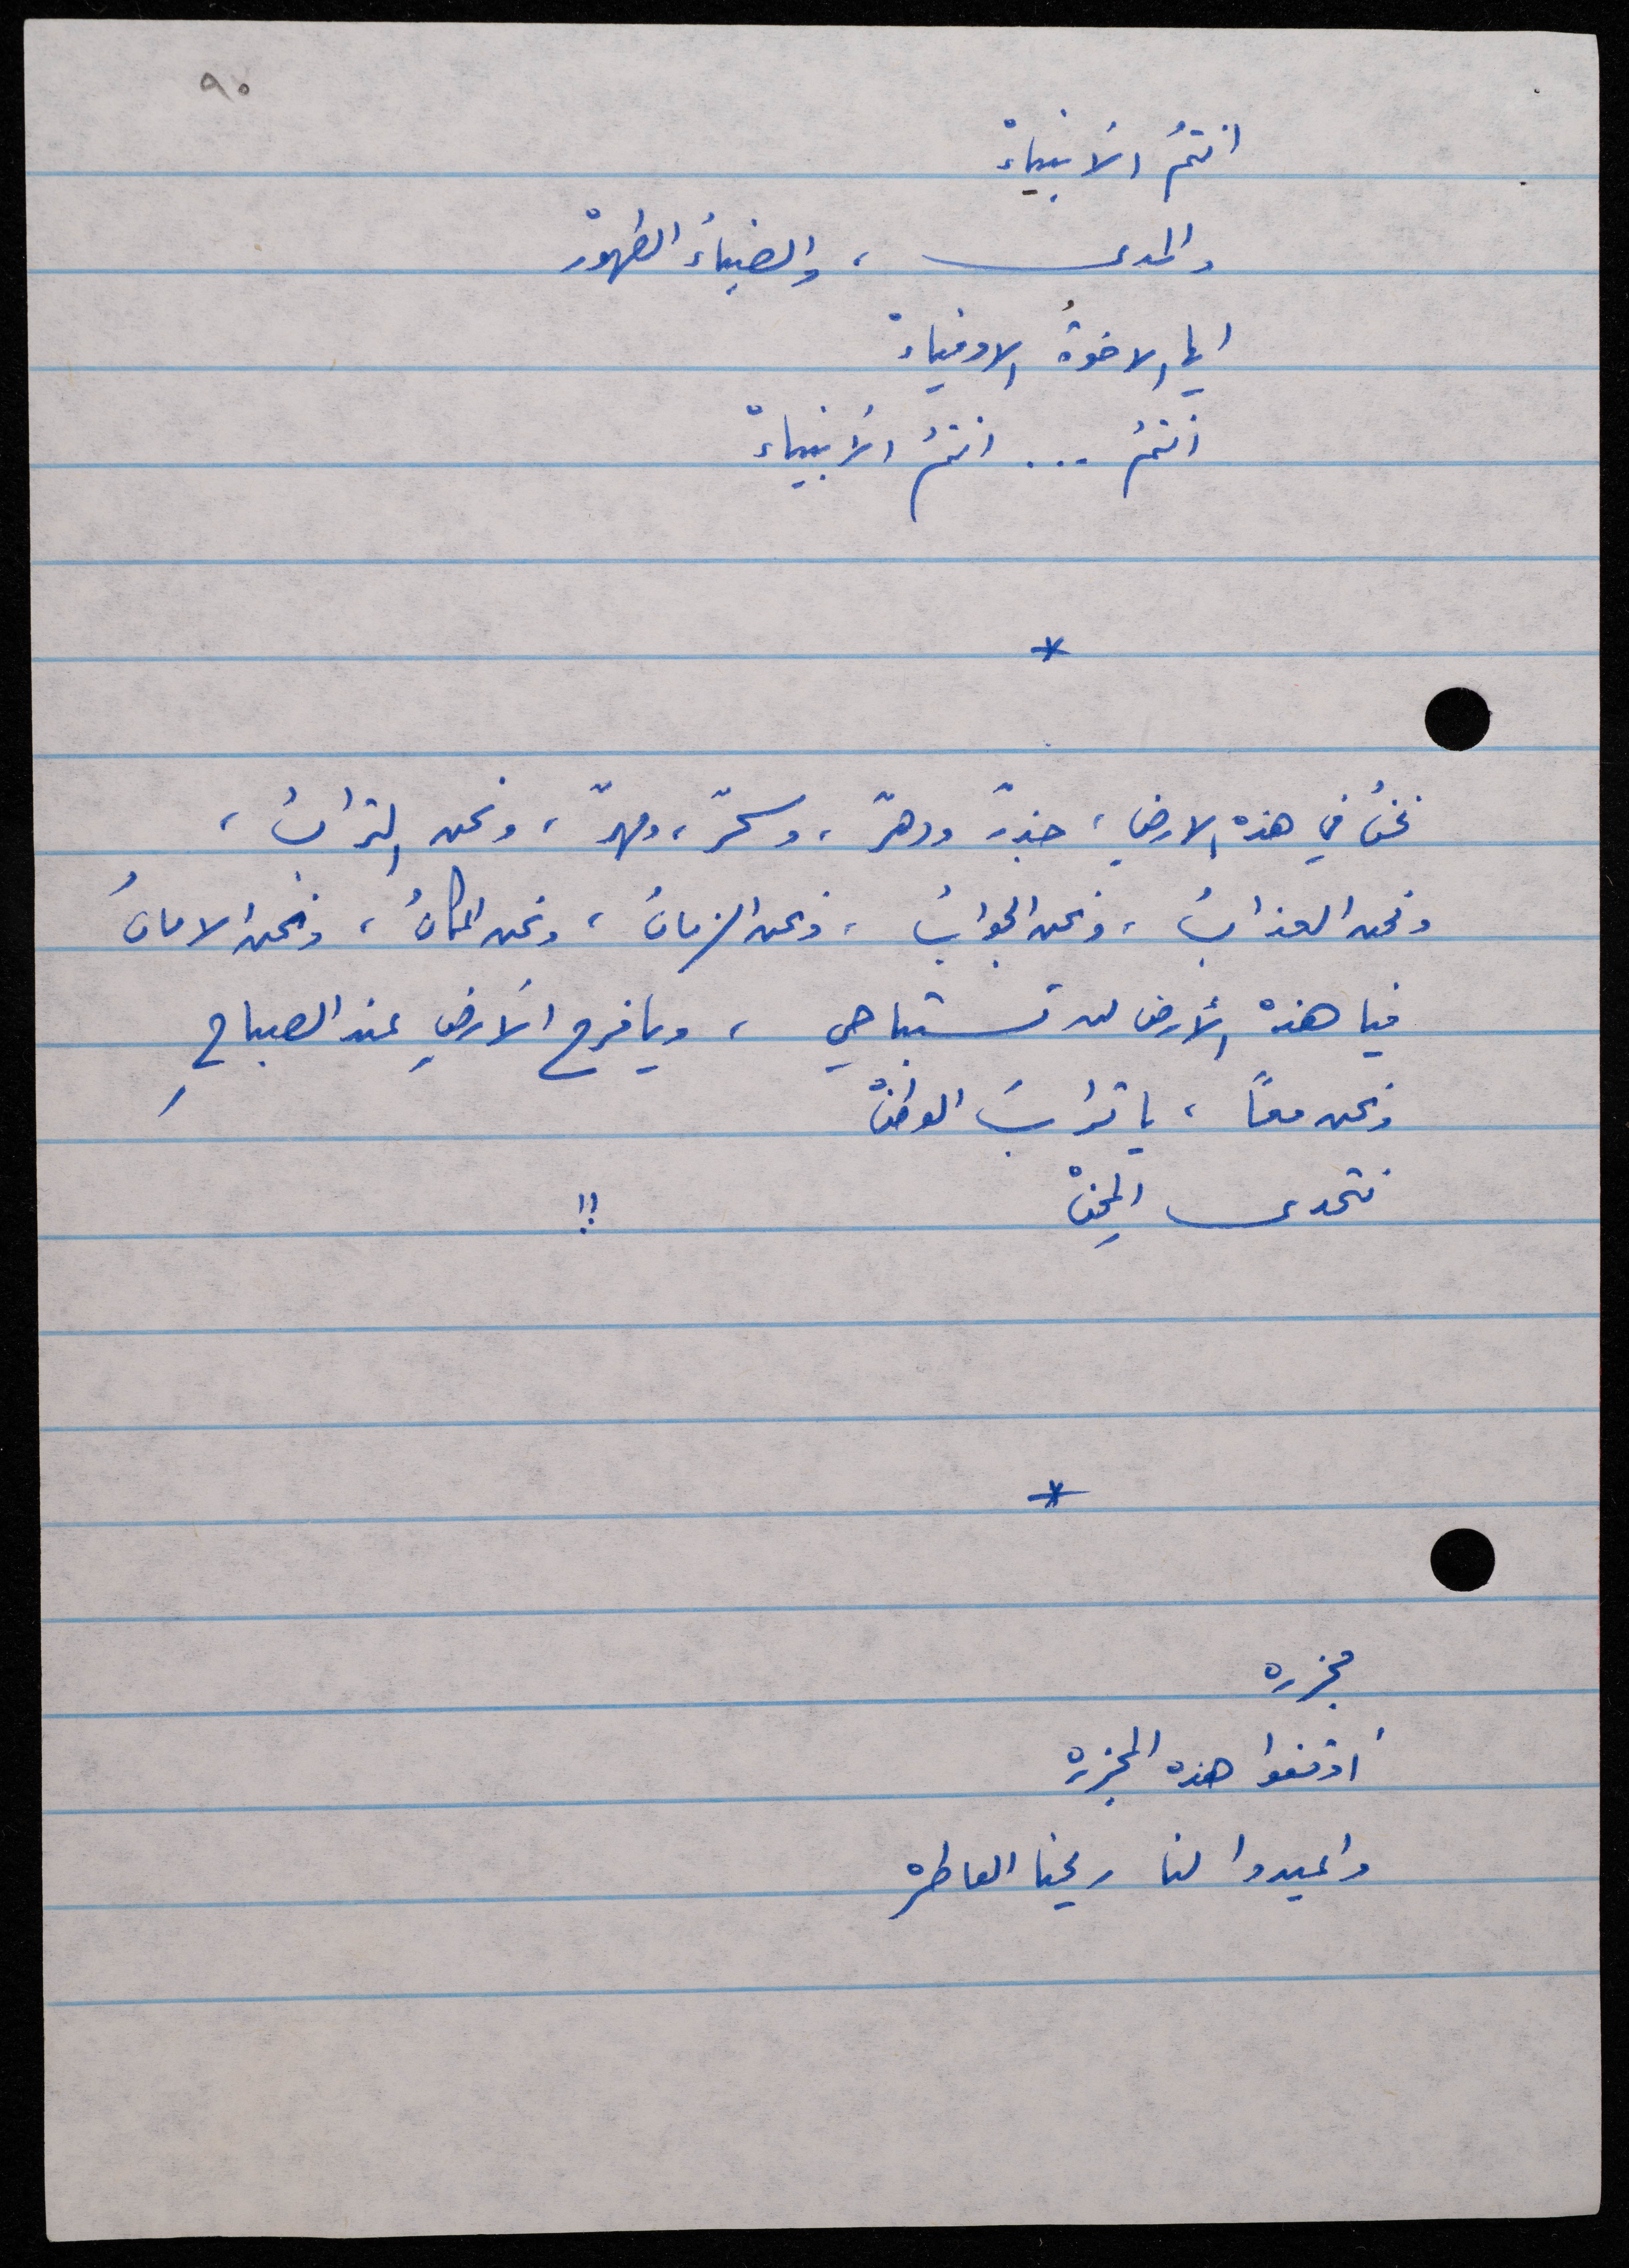 ٩٠
انتمُ الأنبياءْ
والمدى ، والضياءُ الطهورْ
ايها الاخوةُ الاوفياءْ
أنتمُ ... انتمُ الأنبياءْ
*
نحنُ في هذه الارضِ ، جذرٌ ودهرٌ ، وسحرٌ ، ومهرٌ ، ونحن الترابُ ،
ونحن العذابُ ، ونحن الجوابُ ، ونحن الزمانُ ، ونحن المكانُ ، ونحن الامانُ
فيا هذه الأرض لن تستباحي ، ويا فرح الأرضِ عند الصباحِ
ونحن معاً ، يا ترابَ الوطنْ
نتحدى المِحنْ !!
*
مجزره
أوقفوا هذه المجزرة
واعيدوا لنا ريحنا العاطره